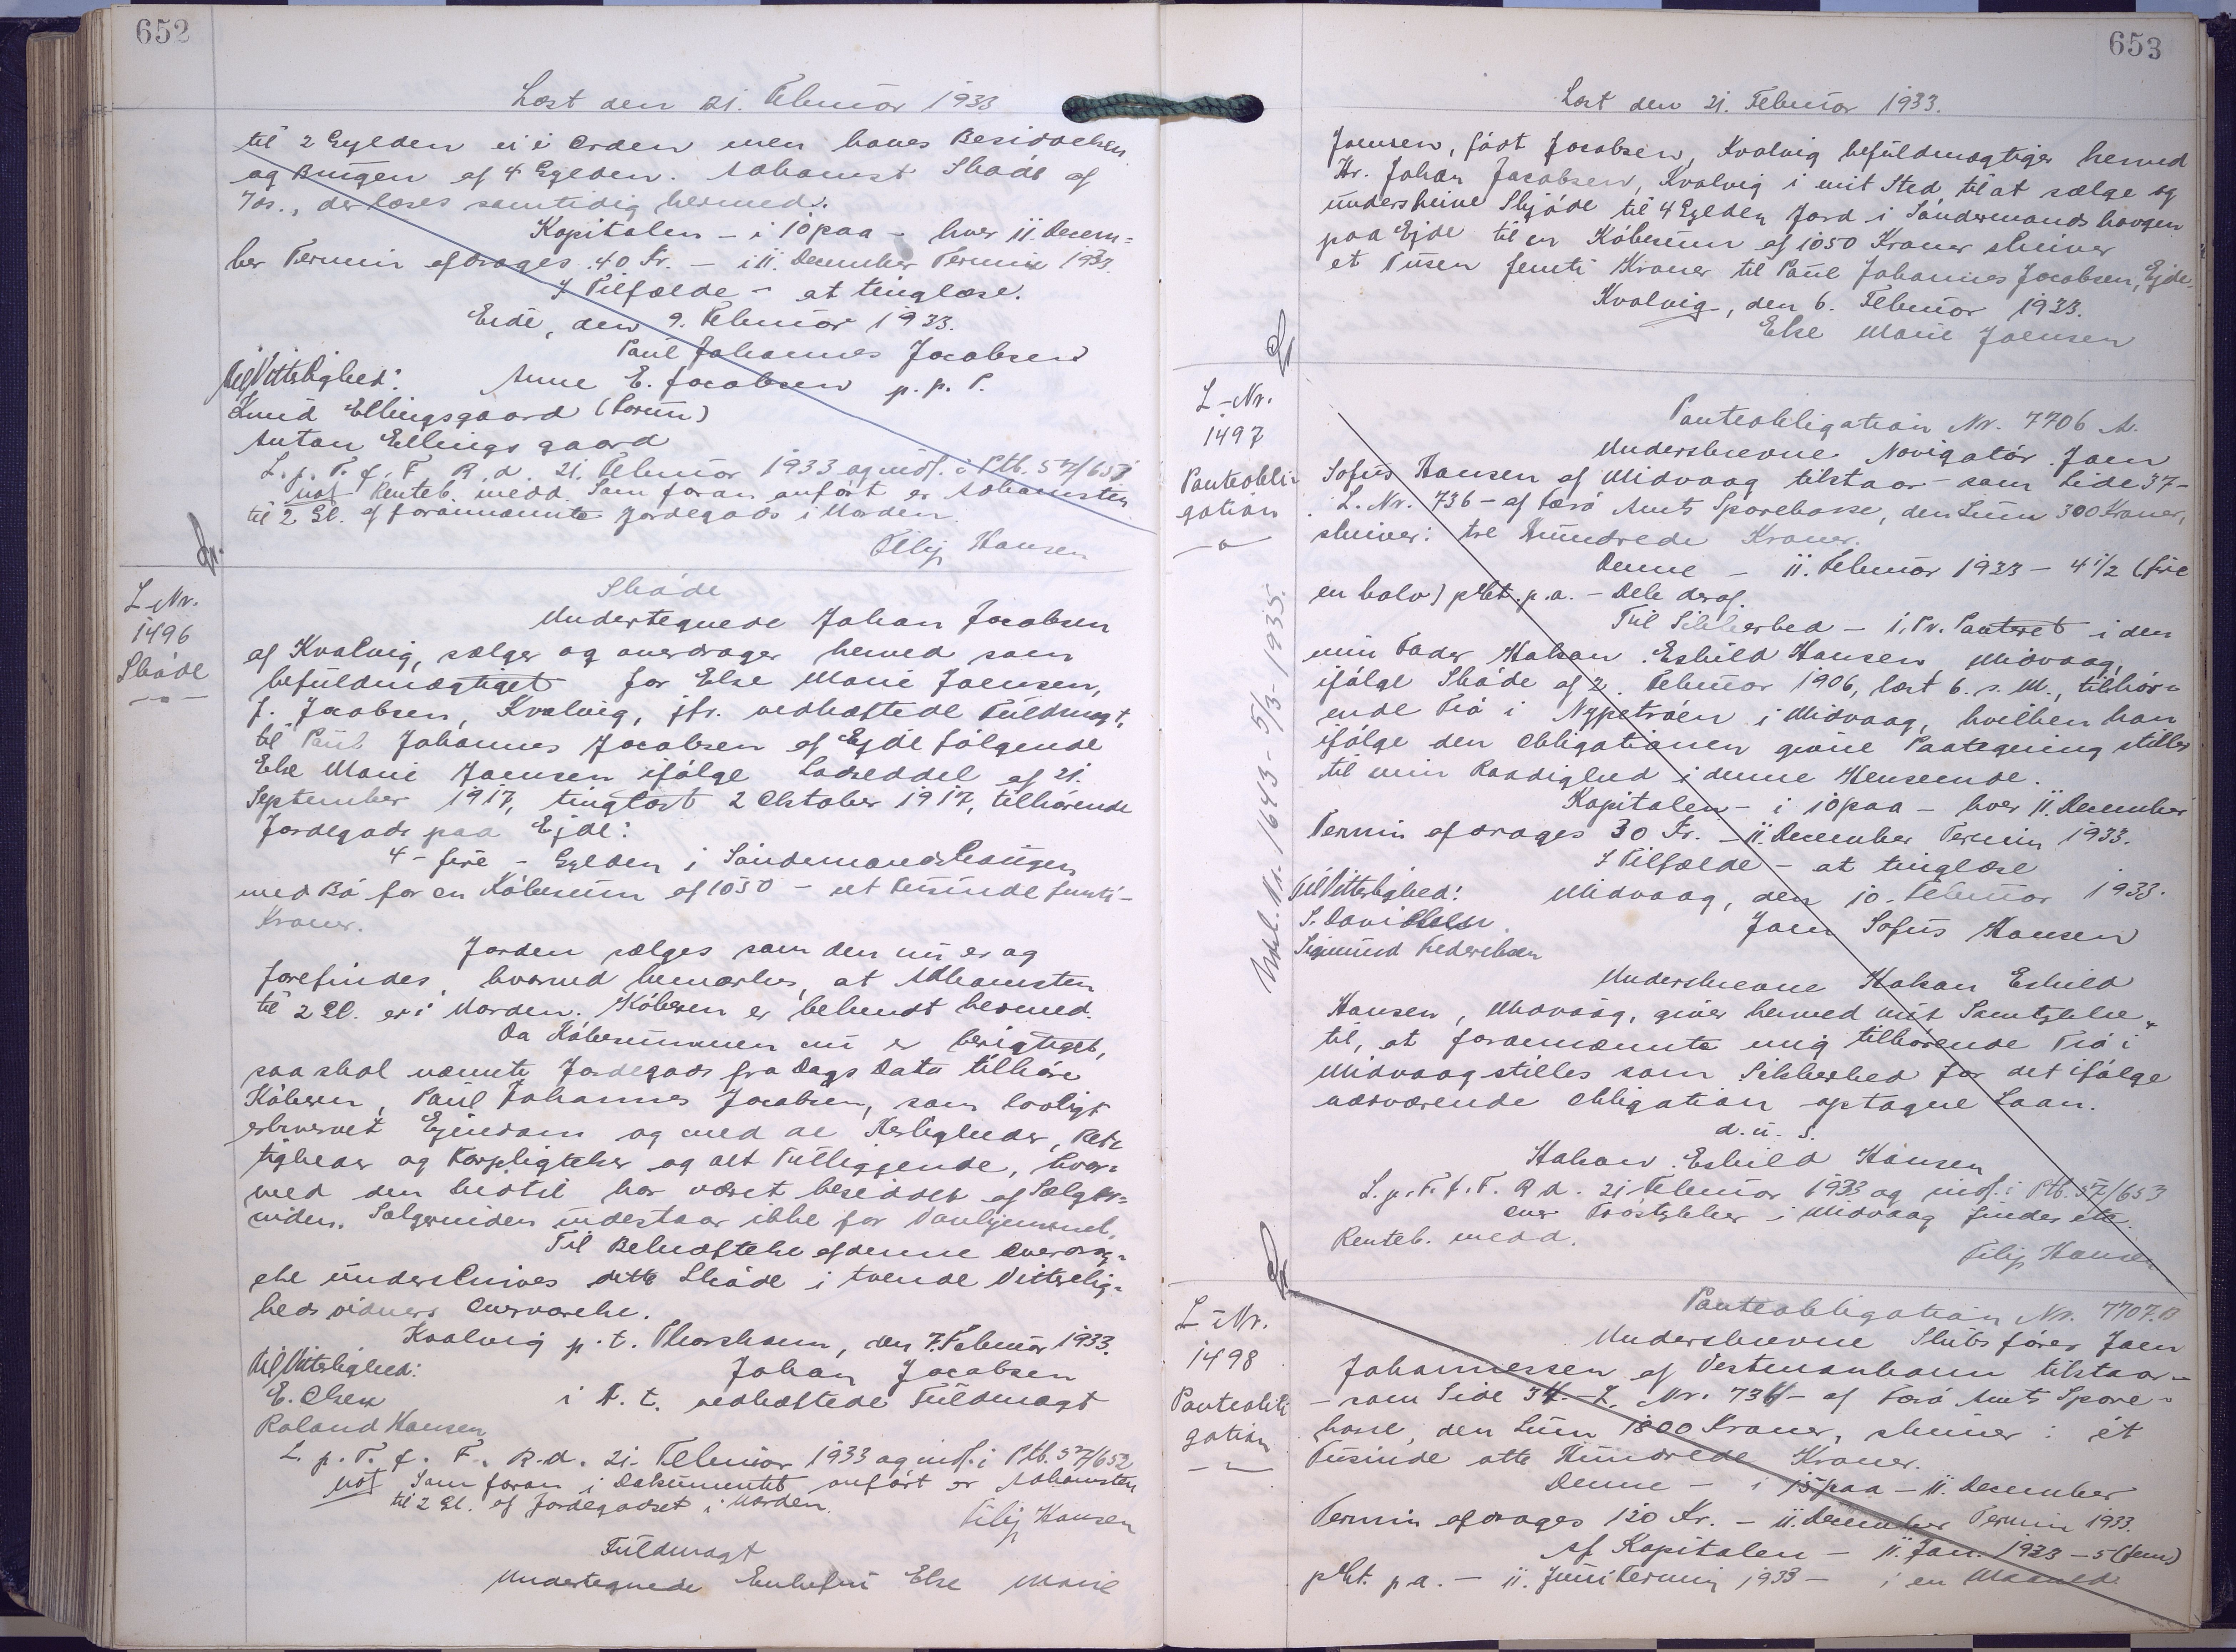 652
Læst den 21. Februar 1933
til 2 Gylden ei i Orden men haves Besiddelsen
og Brugen af 4 Gylden. Adkomst Skøde af
7ds., der læses samtidig hermed.
Kapitalen - i 10 paa - hver 11. Decem=
ber Termin afdrages 40 Kr. - i 11. December Termin 1933.
I Tilfælde - at tinglæse.
Eide, den 9. Februar 1933.
Paul Johannes Jacobsen
Til Vitterlighed: Anne E. Jacobsen p. p. P.
Knud Ellingsgaard
Anton Ellingsgaard
L. p. T. f. F. R. d. 21. Februar 1933 og indf. i Ptb. 57/651
not Renteb. medd. Som foran anført er Adkomsten
til 2 Gl. af forannævnte Jordegods i Uorden.
Filip Hansen
L-Nr.
1496
Skøde
Skøde
Undertegnede Johan Jacobsen
af Kvalvig, sælger og overdrager herved som
befuldmægtiget for Else Marie Joensen,
f. Jacobsen, Kvalvig, jfr. vedhæftede Fuldmagt,
til Paul Johannes Jacobsen af Ejde følgende
Else Marie Joensen ifølge Lodseddel af 21.
September 1917, tinglæst 2 Oktober 1917, tilhørende
Jordegods paa Ejde:
4 - fire - Gylden i Sandemandshaugen
med Bø for en Købesum af 1050 - et tusinde femti -
Kroner.
Jorden sælges som den nu er og
forefindes, hvorved bemærkes, at Adkomsten
til 2 Gl. er i Uorden. Køberen er bekendt hermed.
Da Købesummen nu er berigtiget,
saa skal nævnte Jordegods fra Dags Dato tilhøre
Køberen, Paul Johannes Jacobsen, som lovligt
erhvervet Ejendom og med de Herligheder, Ret=
tigheder og Forpligtelser og alt Tilliggende, hvor=
med den hidtil har været besiddet af Sælger=
inden. Sælgerinden indestaar ikke for Vanhjemmel.
Til Bekræftelse af denne Overdrag=
else underskrives dette Skøde i tvende Vitterlig=
hedsvidners Overværelse.
Kvalvig p. t. Thorshavn, den 7. Februar 1933.
Til Vitterlighed: Johan Jacobsen
E. Olsen i h. t. vedhæftede Fuldmagt
Roland Hansen
L. p. T. f. F. R. d. 21. Februar 1933 og indf. i Ptb. 57/652
not Som foran i Dokumentet anført er Adkomsten
til 2 Gl. af Jordegodset i Uorden.
Filip Hansen
Fuldmagt
Undertegnede Enkefru Else Marie
653
Læst den 21. Februar 1933.
Joensen, født Jacobsen, Kvalvig befuldmægtiger herved
Hr. Johan Jacobsen, Kvalvig i mit Sted til at sælge og
underskrive Skjøde til 4 Gylden Jord i Sandemandshavgen
paa Ejde til en Købesum af 1050 Kroner skriver
et Tusen femti Kroner til Paul Johannes Jacobsen, Ejde.
Kvalvig, den 6. Februar 1933.
Else Marie Joensen
L-Nr.
1497
Panteobli=
gation
Udsl. Nr. 1643 - 5/3 - 1935.
Panteobligation Nr. 7706 A.
Underskrevne Navigatør Joen
Sofus Hansen af Midvaag tilstaar - som Side 37 -
L. Nr. 736 - af Færø Amts Sparekasse, den Sum 300 Kroner,
skriver: tre Hundrede Kroner.
Denne - 11. Februar 1933 - 4 1/2 (fire
en halv) pCt. p. a. - Dele deraf.
Til Sikkerhed - 1. Pr. Panteret i den
min Fader Hakan Eskild Hansen, Midvaag,
ifølge Skøde af 2. Februar 1906, læst 6. s. M., tilhør=
ende Trø i Nypetrøen i Midvaag, hvilken han
ifølge den Obligationen givne Paategning stiller
til min Raadighed i denne Henseende.
Kapitalen - i 10 paa - hver 11. December
Termin afdrages 30 Kr. - 11. December Termin 1933.
I Tilfælde - at tinglæse
Til Vitterlighed: Midvaag, den 10. Februar 1933.
S. Davidsen Joen Sofus Hansen
Sigmund Frederiksen
Underskrevne Hakan Eskild
Hansen, Midvaag, giver herved mit Samtykke
til, at forannævnte mig tilhørende Trø i
Midvaag stilles som Sikkerhed for det ifølge
nærværende Obligation optagne Laan.
d. u. s.
Hakan Eskild Hansen
L. p. T. f. F. R d. 21 Februar 1933 og indf. i Ptb. 57/653
over Trøstykker i Midvaag findes etc.
Renteb. medd.
Filip Hansen
L-Nr.
1498
Panteobli
gation
Panteobligation Nr. 7707.B
Underskrevne Skibsfører Joen
Johannessen af Vestmanhavn tilstaar -
- som Side 34 - L. Nr. 734 - af Færø Amts Spare=
kasse, den Sum 1800 Kroner, skriver: et
Tusinde otte Hundrede Kroner.
Denne - i 15 paa - 11. December
Termin afdrages 120 Kr. - 11. December Termin 1933.
Af Kapitalen - 11. Jan. 1933 - 5 (fem)
pCt. p. a. - 11. Juni Termin 1933 - i en Maaned